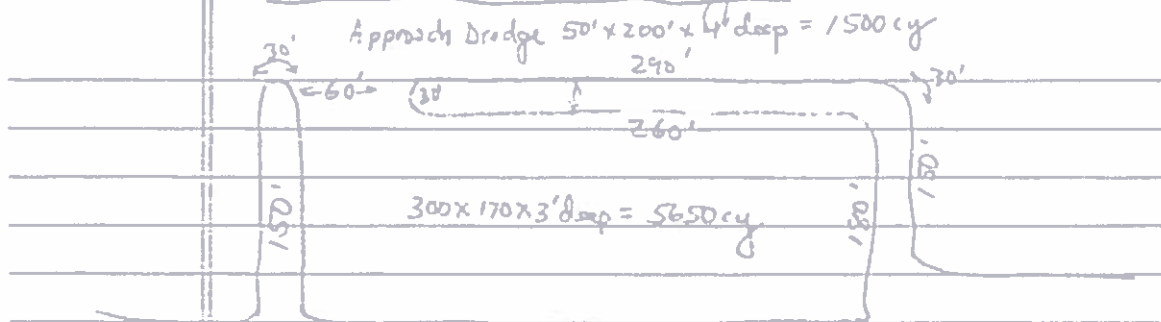 Approach Dredge 50' x 200' x 4' deep = 1500 cy
30'
290'
30'
60'
30'
260'
150'
150'
300 x 170 x 3' deep = 5650 cy
180'